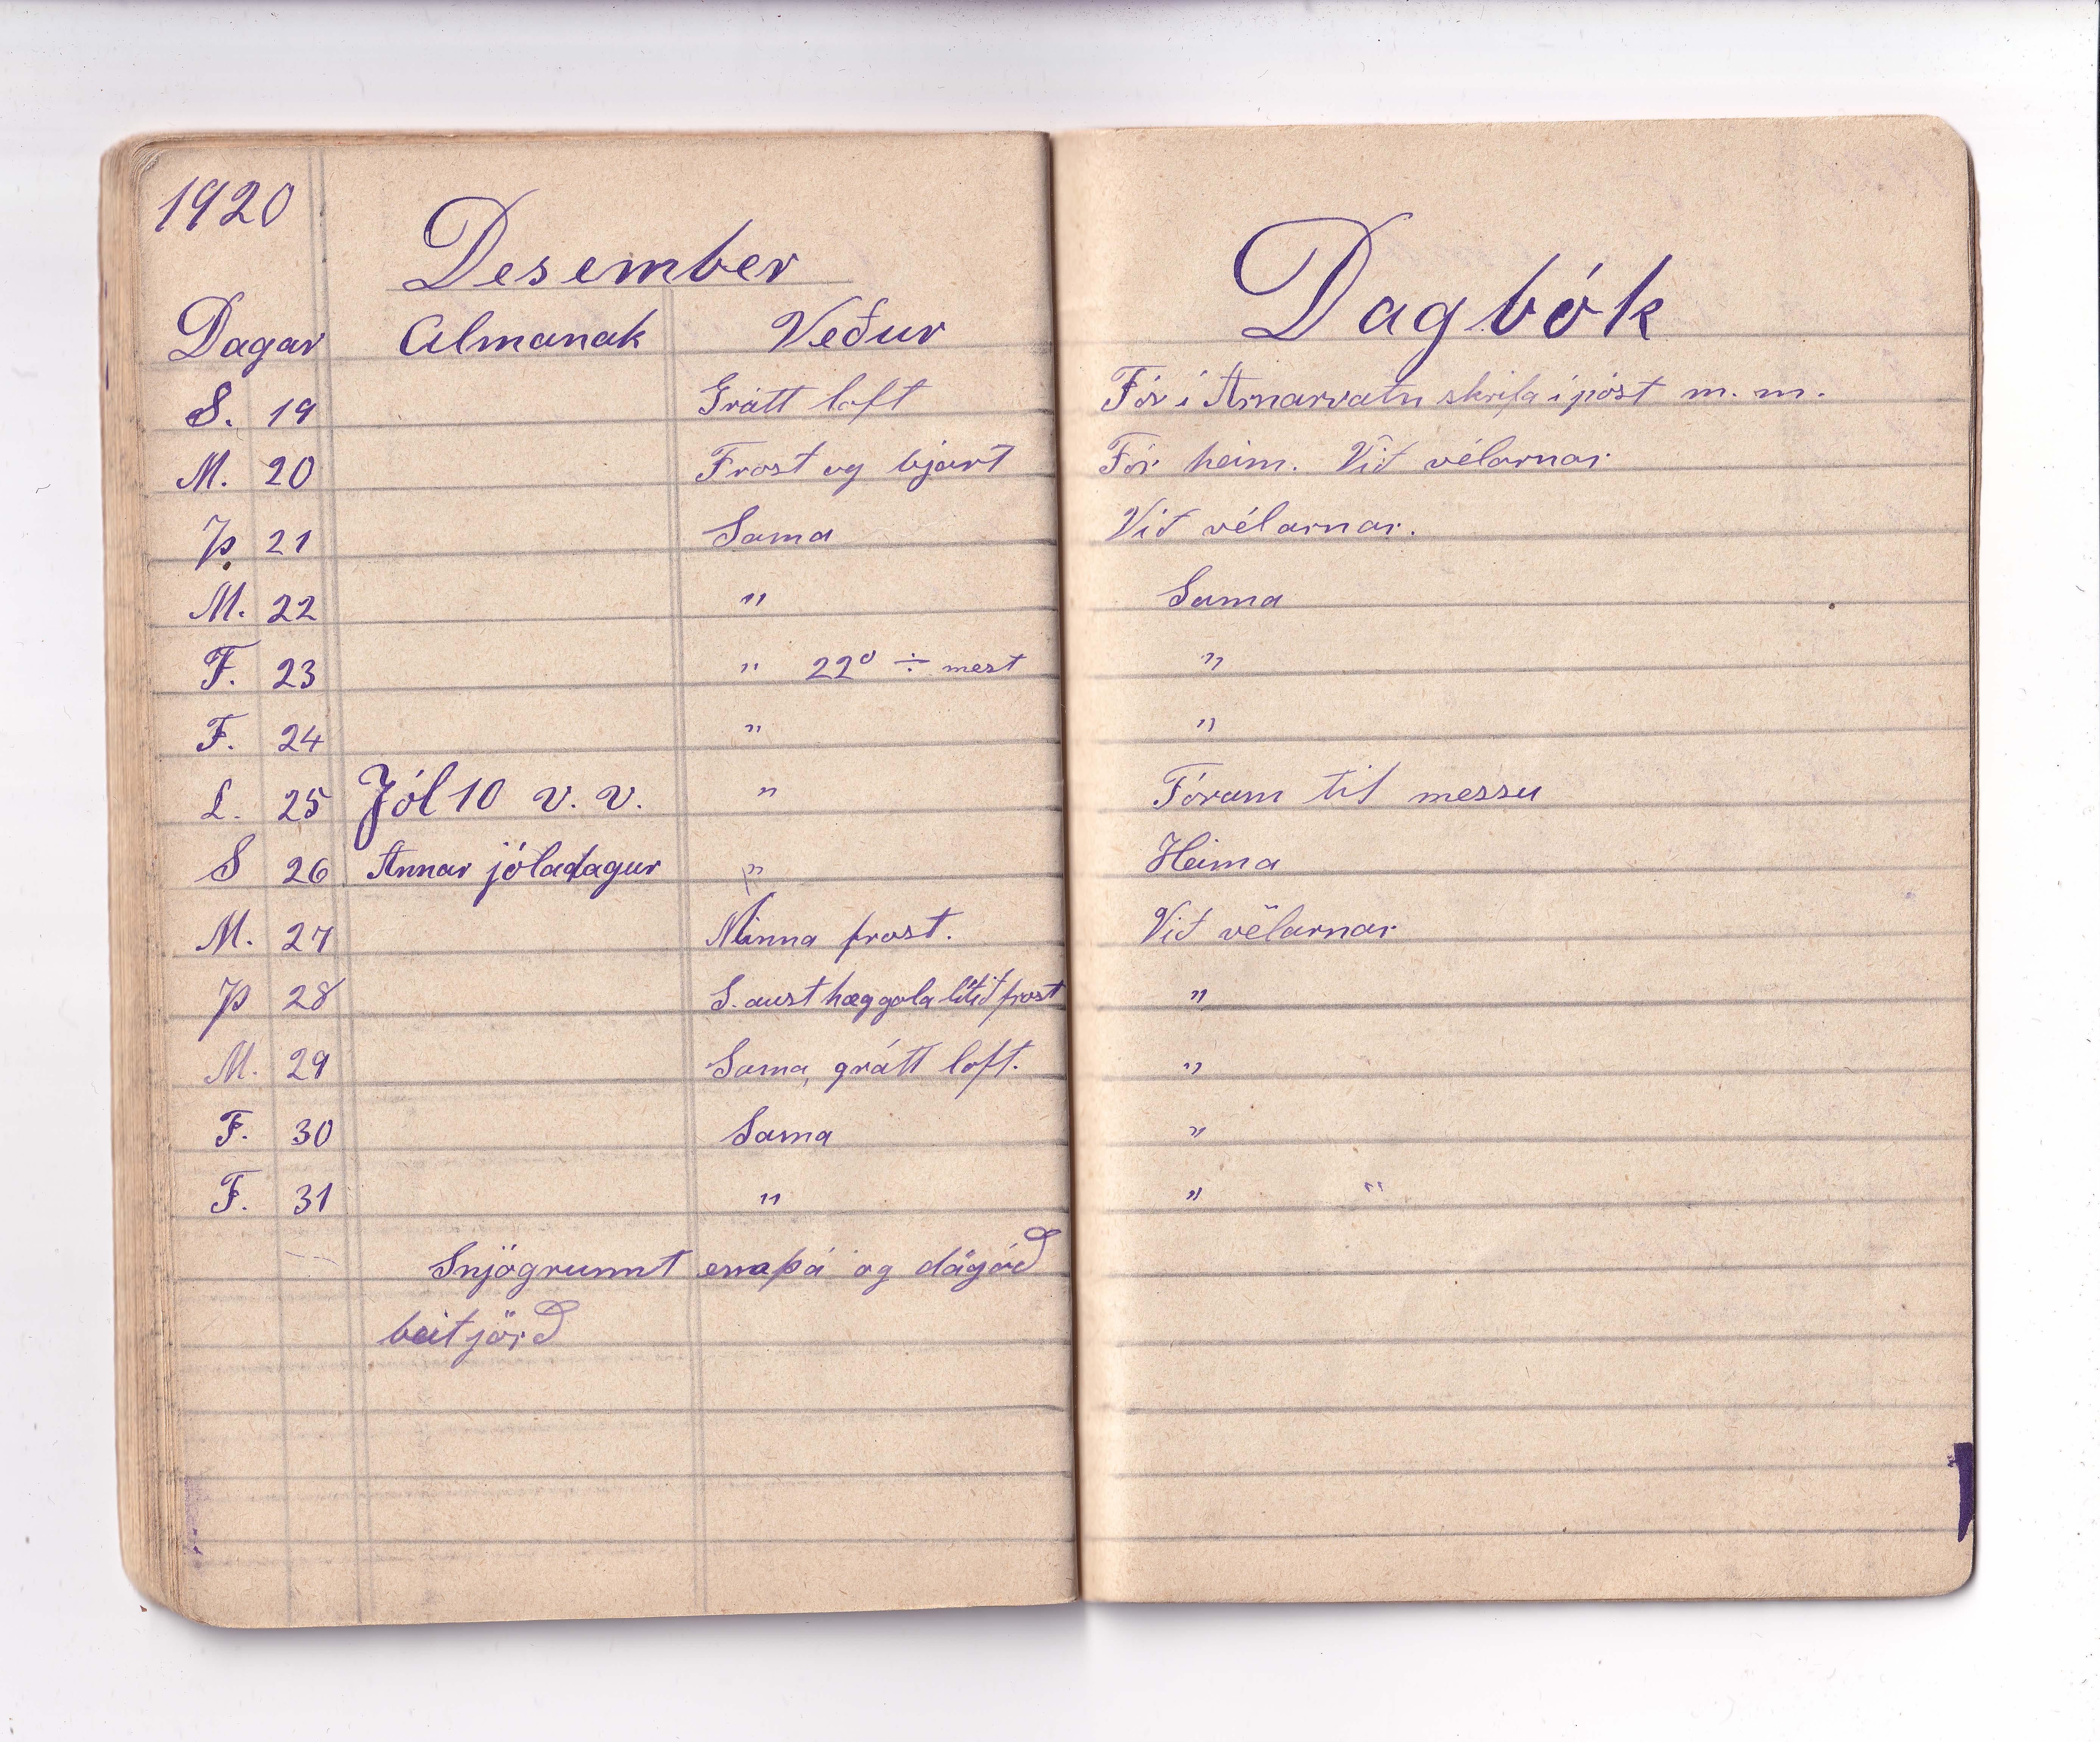 1920
Desember
Dagbók
Dagar Almanak Veður
S. 19 Grátt loft Fór í Arnarvatn skrifa í póst m. m.
M. 20 Frost og bjart Fór heim. Við vélarnar
Þ 21 Sama Við vélarnar.
M. 22 " Sama
F. 23 " 22° ÷ mest "
F. 24 " "
L. 25 Jól 10 v. v. " Fórum til messu
S 26 Annar jóladagur " Heima
M. 27 Minna frost. Við vélarnar
Þ 28 S. aust hæg gola lítið frost "
M. 29 Sama, grátt loft. "
F. 30 Sama "
F. 31 " " "
Snjógrunnt ennþá og dágóð
beitjörð